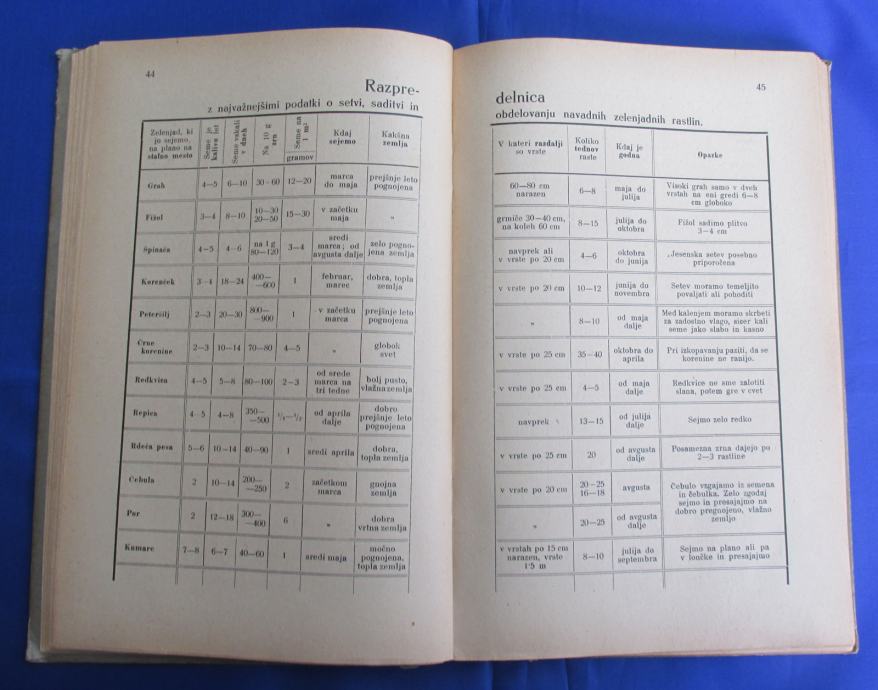 44
Razpre-
z najvažnejšimi podatki o setvi, saditvi in
Zelenjad, ki jo sejemo, na plano na stalno mesto | Seme je kalivo let | Seme vskali v dneh | Na 10 g zrn | Seme na 1 m² gramov | Kdaj sejemo | Kakšna zemlja
Grah | 4—5 | 6—10 | 30-60 | 12—20 | marca do maja | prejšnje leto pognojena
Fižol | 3—4 | 8—10 | 10—30 20—50 | 15—30 | v začetku maja | „
Špinača | 4—5 | 4—6 | na 1 g 80—120 | 3—4 | sredi marca; od avgusta dalje | zelo pogno- jena zemlja
Korenček | 3—4 | 18—24 | 400— —600 | 1 | februar, marec | dobra, topla zemlja
Peteršilj | 2—3 | 20—30 | 800— —900 | 1 | v začetku marca | prejšnje leto pognojena
Črne korenine | 2—3 | 10—14 | 70—80 | 4—5 | „ | globok svet
Redkvica | 4—5 | 5—8 | 80—100 | 2—3 | od srede marca na tri tedne | bolj pusto, vlažna zemlja
Repica | 4—5 | 4—8 | 350— —500 | od aprila dalje | dobro prejšnje leto pognojena
Rdeča pesa | 5—6 | 10—14 | 40—90 | 1 | sredi aprila | dobra, topla zemlja
Čebula | 2 | 10—14 | 200— —250 | 2 | začetkom marca | gnojna zemlja
Por | 2 | 12—18 | 300— —400 | 6 | „ | dobra vrtna zemlja
Kumare | 7—8 | 6—7 | 40—60 | 1 | sredi maja | močno pognojena, topla zemlja
45
delnica
obdelovanju navadnih zelenjadnih rastlin.
V kateri razdalji so vrste | Koliko tednov raste | Kdaj je godna | Opazke
60—80 cm narazen | 6—8 | maja do julija | Visoki grah samo v dveh vrstah na eni gredi 6—8 cm globoko
grmiče 30—40 cm, na koleh 60 cm | 8—15 | julija do oktobra | Fižol sadimo plitvo 3—4 cm
navprek ali v vrste po 20 cm | 4—6 | oktobra do junija | Jesenska setev posebno priporočena
v vrste po 20 cm | 10—12 | junija do novembra | Setev moramo temeljito povaljati ali pohoditi
„ | 8—10 | od maja dalje | Med kalenjem moramo skrbeti za zadostno vlago, sicer kali seme jako slabo in kasno
v vrste po 25 cm | 35—40 | oktobra do aprila | Pri izkopavanju paziti, da se korenine ne ranijo.
v vrste po 25 cm | 4—5 | od maja dalje | Redkvice ne sme zalotiti slana, potem gre v cvet
navprek | 13—15 | od julija dalje | Sejmo zelo redko
v vrste po 25 cm | 20 | od avgusta dalje | Posamezna zrna dajejo po 2—3 rastline
v vrste po 20 cm | 20—25 16—18 | avgusta | Čebulo vzgajamo iz semena in čebulka. Zelo zgodaj sejmo in presajajmo na dobro pregnojeno, vlažno zemljo
„ | 20—25 | od avgusta dalje
v vrstah po 15 cm narazen, vrste 1·5 m | 8—10 | julija do septembra | Sejmo na plano ali pa v lončke in presajajmo